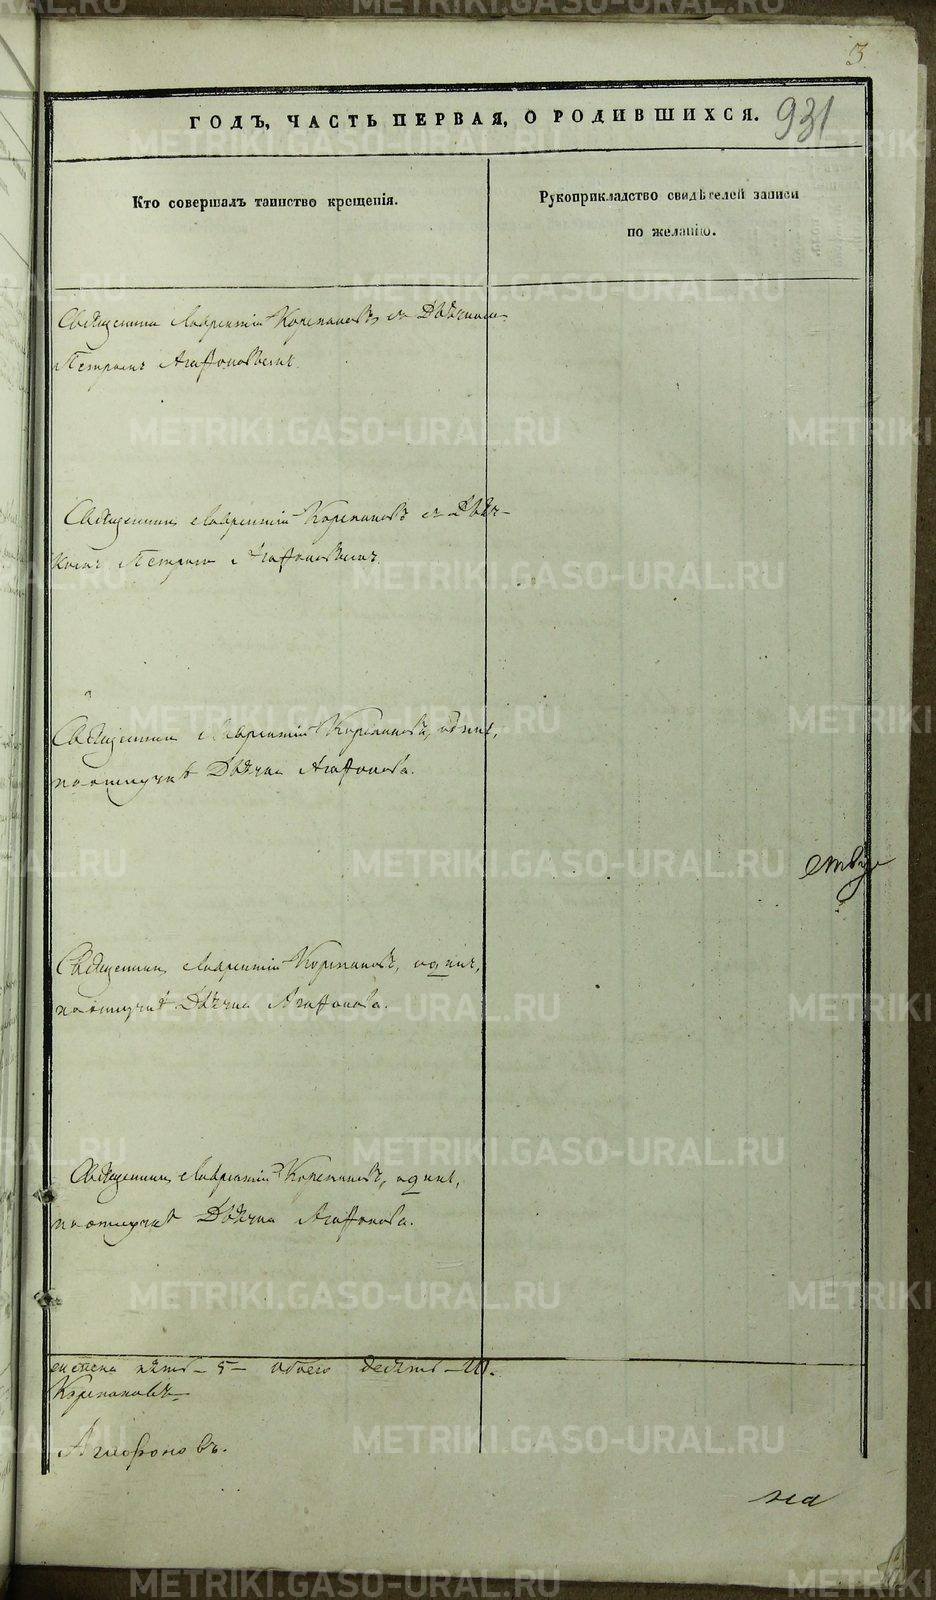 3
931
ГОДЪ, ЧАСТЬ ПЕРВАЯ, О РОДИВШИХСЯ.
Кто совершалъ таинство крещенія.
Рукоприкладство свидѣтелей записи
по желанію.
Священникъ Лаврентій Корепановъ, съ Дьячкомъ
Петромъ Агафоновымъ.
Священникъ Лаврентій Корепановъ съ Дьяч-
комъ Петромъ Агафоновымъ.
Священникъ Лаврентій Корепановъ, одинъ,
по отлучкѣ Дьячка Агафонова.
Священникъ Лаврентій Корепановъ, одинъ,
по отлучкѣ Дьячка Агафонова.
Священникъ Лаврентій Корепановъ, одинъ,
по отлучкѣ Дьячка Агафонова.
женска пять – 5 – обоего десять – 10.
Корепановъ
Агафоновъ.
на
METRIKI.GASO-URAL.RU